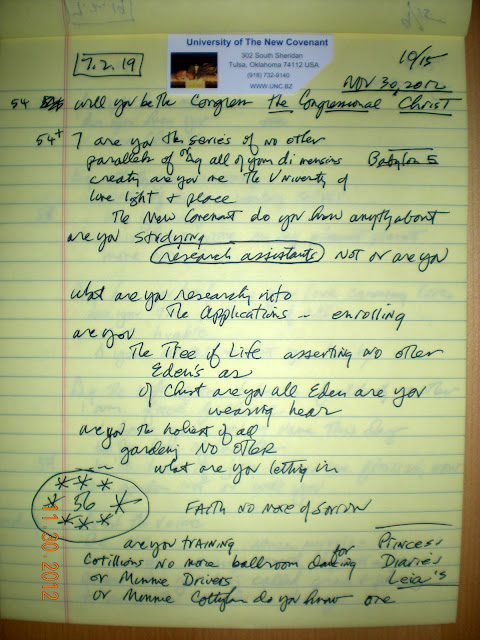 University of The New Covenant
302 South Sheridan
Tulsa, Oklahoma 74112 USA
(918) 732-9140
WWW.UNC.BZ
7.2.19
10/15
NOV 30, 2012
54 will you be the Congress the Congressional Christ
54+ 7 are you the series of no other
parallels of or by all of your di mensions Babylon 5
creating are you me The University of
love light + peace
The New Covenant do you know anything about
are you studying
research assistants NOT or are you
what are you researching into
The Applications - enrolling
are you
The Tree of Life asserting NO other
Eden's as
of Christ are you all Eden are you
wearing hear
are you the holiest of all
gardening NO OTHER
what are you letting in
56
FAITH NO MORE of SORROW
are you TRAINING for Princess
Cotillions NO more ballroom dancing Diaries
or Minnie Drivers Leia's
or Minnie do you know one
11.30.2012